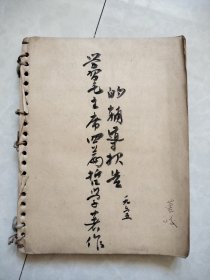 学习毛主席四篇哲学著作
的辅导报告